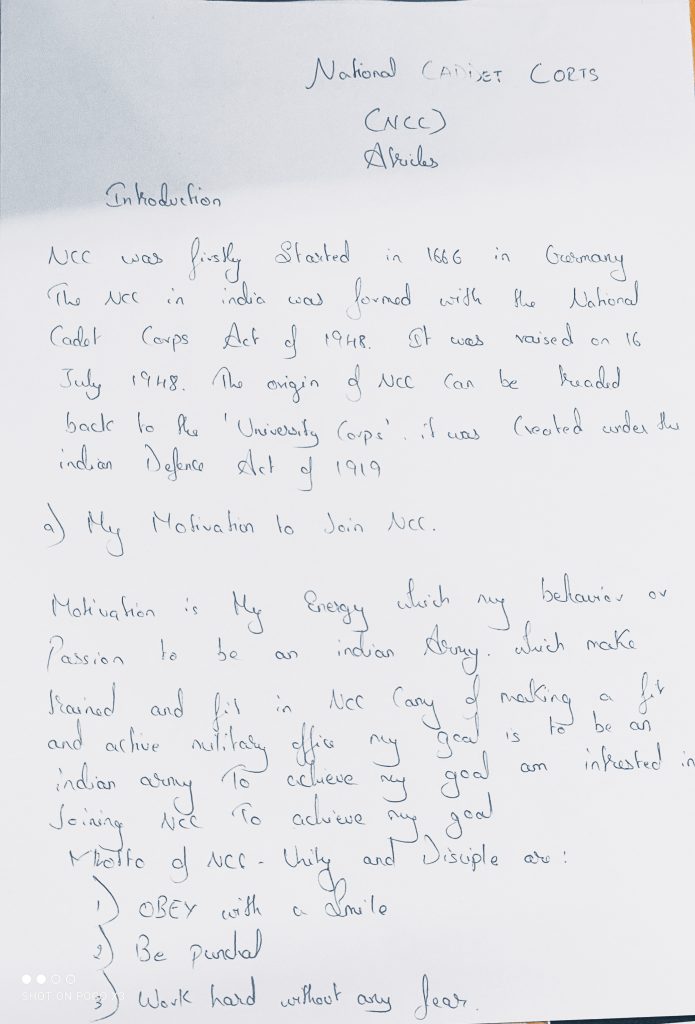 National CADET CORTS
(NCC)
Introduction
NCC was firstly Started in 1666 in Germany
The NCC in india was formed with the National
Cadet Corps Act of 1948. It was raised on 16
July 1948. The origin of NCC can be treaded
back to the 'University Corps'. it was Created under the
indian Defence Act of 1919
a) My Motivation to Join NCC.
Motivation is My Energy which my behavior or
Passion to be an indian Army. which make
trained and fit in NCC Camy of making a fit
and active military office my goal is to be an
indian army To achieve my goal am intrested in
Joining NCC To achieve my goal
Motto of NCC - Unity and Disciple are :
1) OBEY with a Smile
2) Be punctal
3) Work hard without any fear.
SHOT ON POCO